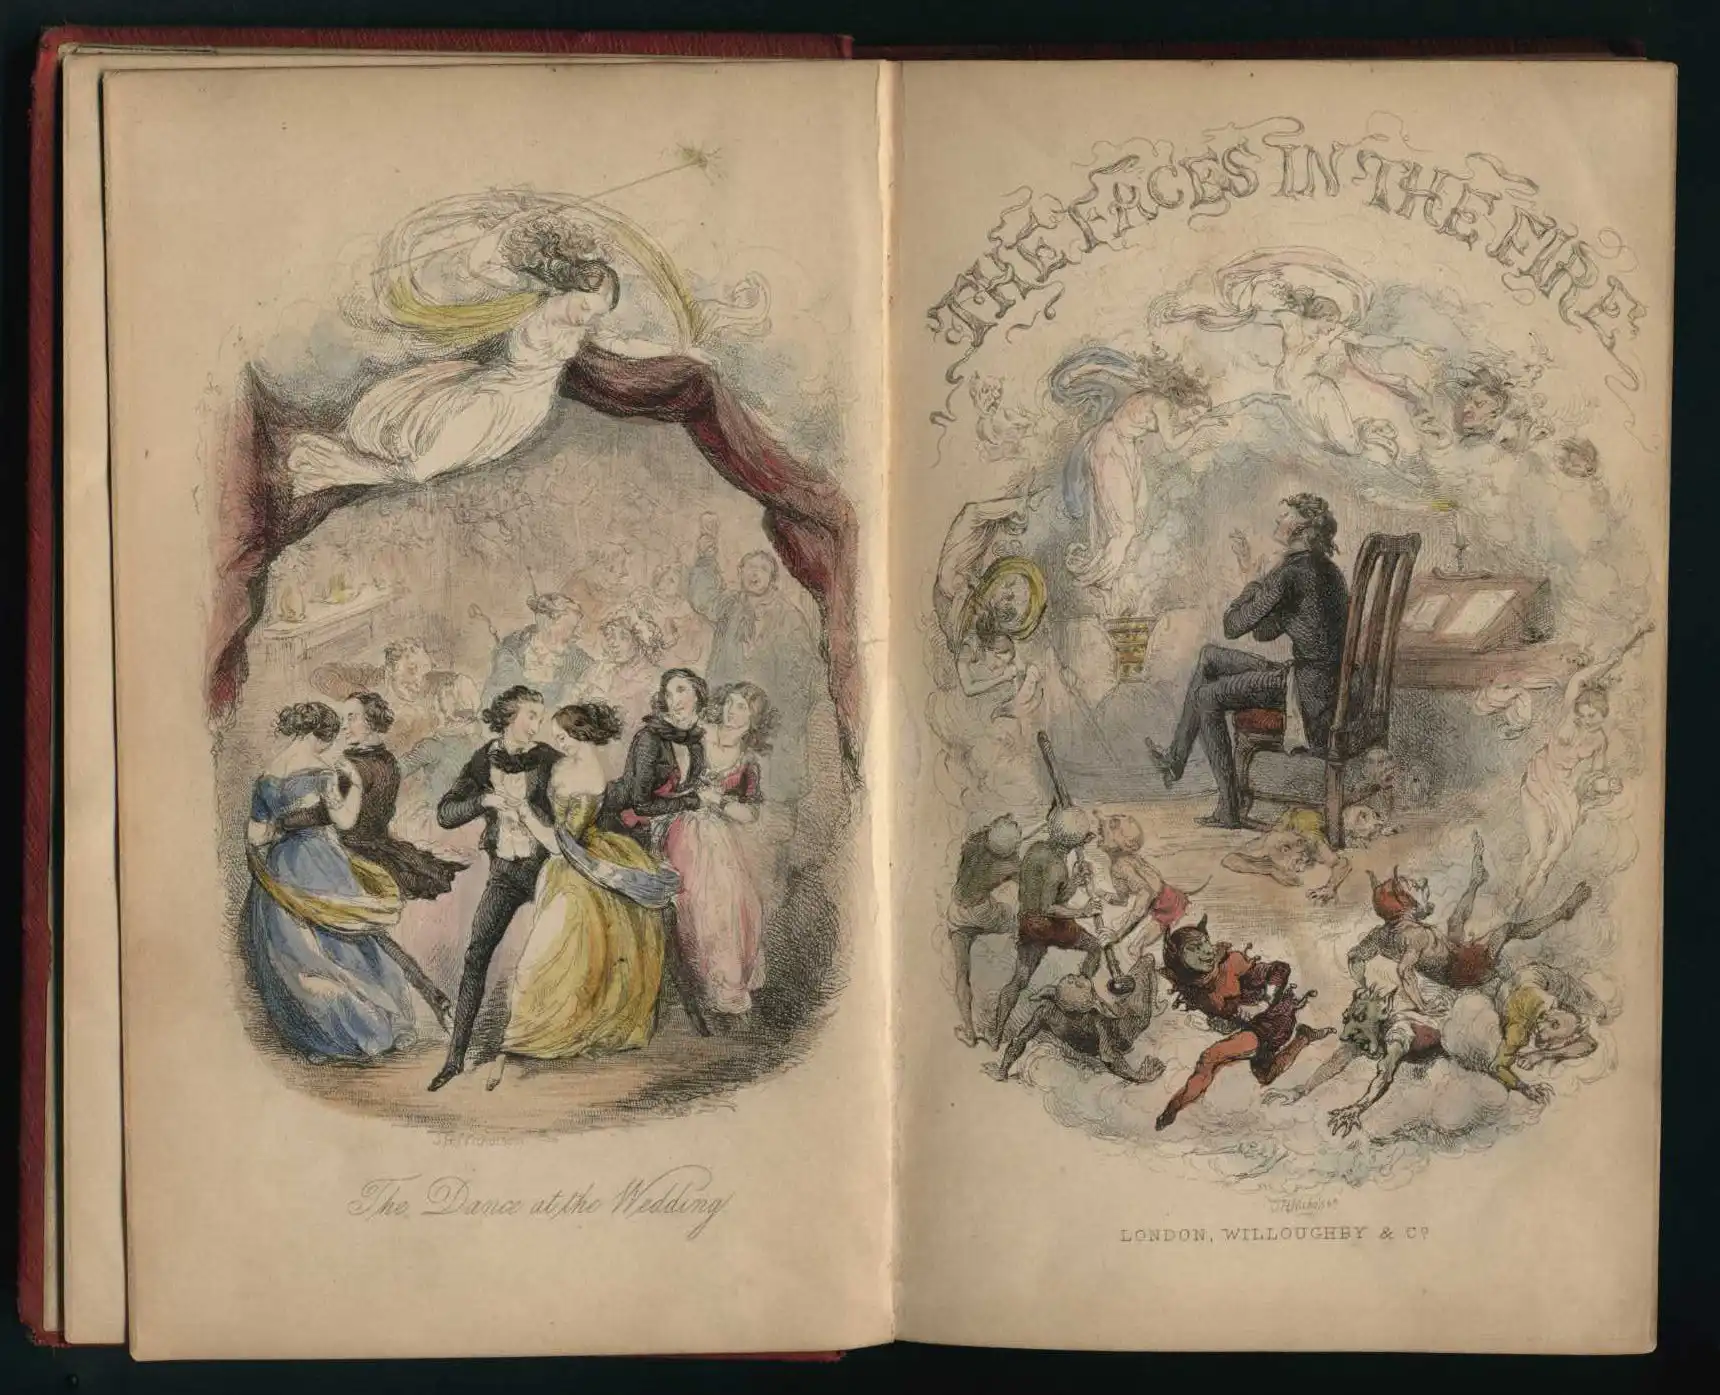 T.H. Nicholson
The Dance at the Wedding
THE FACES IN THE FIRE
T.H. Nicholson
LONDON, WILLOUGHBY & Cº